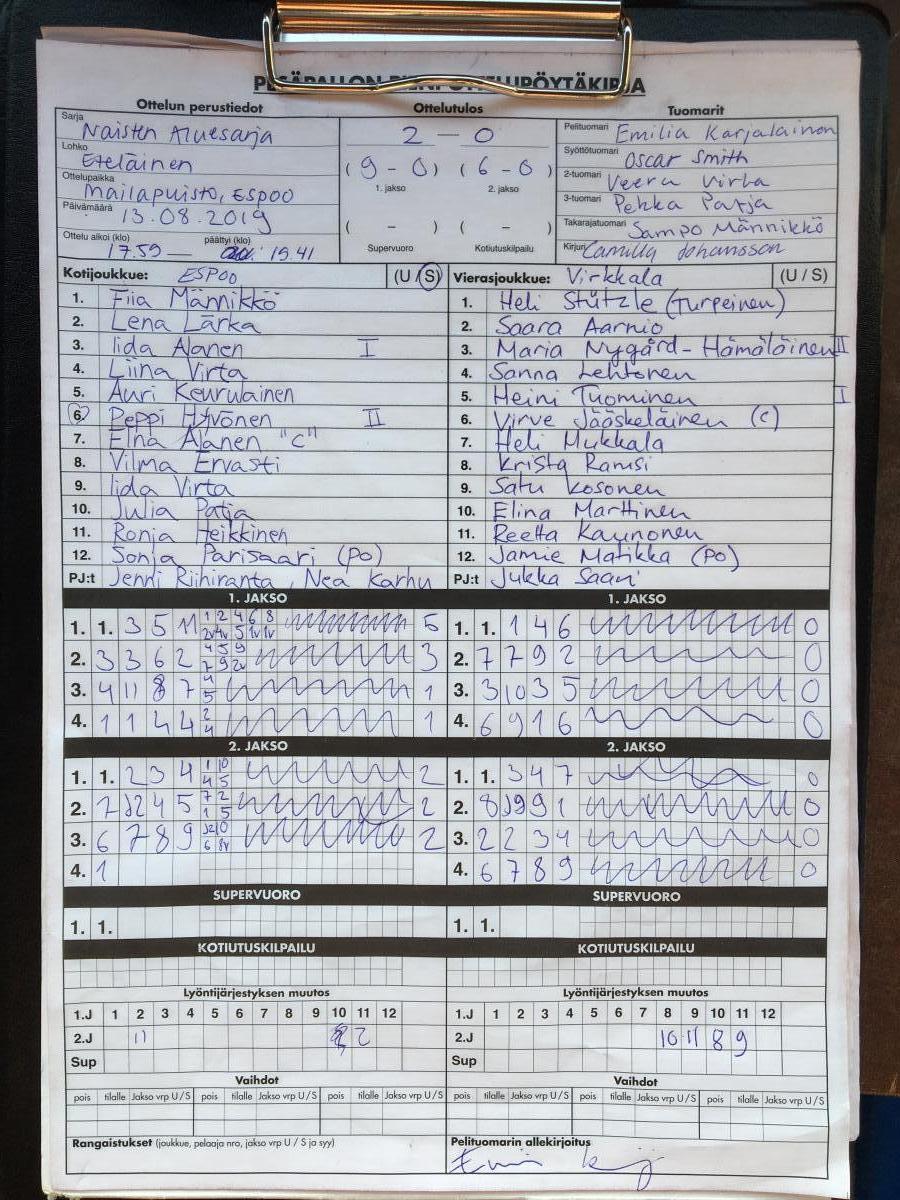 Ottelun perustiedot Ottelutulos Tuomarit
Sarja Naisten Aluesarja
Lohko Eteläinen
Ottelupaikka Mailapuisto, ESPOO
Päivämäärä 13.08.2019
Ottelu alkoi (klo) päättyi (klo)
17.59 — 19.41
2 — 0
(9 - 0) (6 - 0)
1. jakso 2. jakso
( - ) ( - )
Supervuoro Kotiutuskilpailu
Pelituomari Emilia Karjalainen
Syöttötuomari Oscar Smith
2-tuomari Veera Virta
3-tuomari Pekka Patja
Takarajatuomari Sampo Männikkö
Kirjuri Camilla Johansson
Kotijoukkue: ESPOO (U / S)
1. Fiia Männikkö
2. Lena Lärka
3. Iida Alanen I
4. Liina Virta
5. Auri Keurulainen
6. Peppi Hyvönen II
7. Elna Alanen "C"
8. Vilma Ervasti
9. Iida Virta
10. Julia Patja
11. Ronja Heikkinen
12. Sonja Parisaari (PO)
PJ:t Jenni Riihiranta, Nea Karhu
Vierasjoukkue: Virkkala (U / S)
1. Heli Stützle (Turpeinen)
2. Saara Aarnio
3. Maria Nygård-Hämäläinen II
4. Sanna Lehtonen
5. Heini Tuominen I
6. Virve Jääskeläinen (C)
7. Heli Mukkala
8. Krista Ramsi
9. Satu Kosonen
10. Elina Marttinen
11. Reetta Kaunonen
12. Jamie Matikka (PO)
PJ:t Jukka Saari
1. JAKSO 1. JAKSO
1. 1. 3 5 11 5
2. 3 3 6 2 3
3. 4 11 8 7 1
4. 1 1 4 4 1
1. 1. 1 4 6 0
2. 7 7 9 2 0
3. 3 10 3 5 0
4. 6 9 1 6 0
2. JAKSO 2. JAKSO
1. 1. 2 3 4 2
2. 7 12 4 5 2
3. 6 7 8 9 2
4. 1
1. 1. 3 4 7 0
2. 8 9 9 1 0
3. 2 2 3 4 0
4. 6 7 8 9 0
SUPERVUORO SUPERVUORO
1. 1. 1. 1.
KOTIUTUSKILPAILU KOTIUTUSKILPAILU
Lyöntijärjestyksen muutos Lyöntijärjestyksen muutos
1.J 1 2 3 4 5 6 7 8 9 10 11 12
2.J 11 2
Sup
1.J 1 2 3 4 5 6 7 8 9 10 11 12
2.J 10 11 8 9
Sup
Vaihdot Vaihdot
pois tilalle Jakso vrp U / S pois tilalle Jakso vrp U / S pois tilalle Jakso vrp U / S
pois tilalle Jakso vrp U / S pois tilalle Jakso vrp U / S pois tilalle Jakso vrp U / S
Rangaistukset (joukkue, pelaaja nro, jakso vrp U / S ja syy)
Pelituomarin allekirjoitus